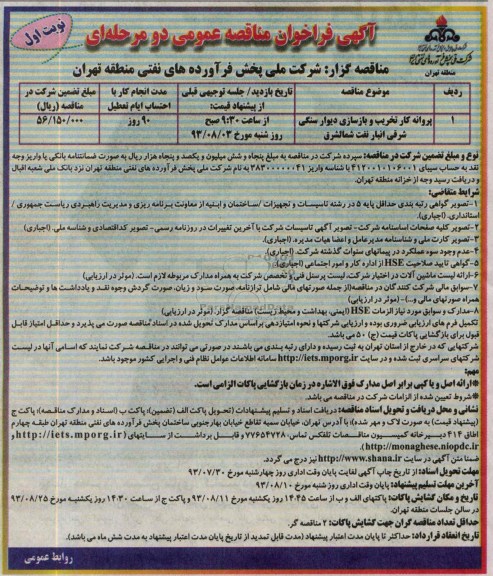 آگهی فراخوان مناقصه عمومی دو مرحله‌ای
نوبت اول
مناقصه گزار: شرکت ملی پخش فرآورده های نفتی منطقه تهران
منطقه تهران
ردیف
موضوع مناقصه
تاریخ بازدید / جلسه توجیهی قبلی از پیشنهاد قیمت:
مدت انجام کار با احتساب ایام تعطیل
مبلغ تضمین شرکت در مناقصه (ریال)
۱
پروانه کار تخریب و بازسازی دیوار سنگی شرقی انبار نفت شمالشرق
از ساعت ۹:۳۰ صبح روز شنبه مورخ ۹۳/۰۸/۰۳
۹۰ روز
۵۶/۱۵۰/۰۰۰
نوع و مبلغ تضمین شرکت در مناقصه: سپرده شرکت در مناقصه به مبلغ پنجاه و شش میلیون و یکصد و پنجاه هزار ریال به صورت ضمانتنامه بانکی یا واریز وجه
نقد به حساب سیبای ۴۱۲۰۰۱۰۱۰۶۰۰۱ با شناسه واریز ۳۸۳۰۰۰۰۰۰۴۱ به نام شرکت ملی پخش فرآورده های نفتی منطقه تهران نزد بانک ملی شعبه ایفال
و دریافت رسید وجه از خزانه منطقه تهران.
شرایط متقاضی:
۱-تصویر گواهی رتبه بندی حداقل پایه ۵ در رشته تاسیسات و تجهیزات /ساختمان و ابنیه از معاونت برنامه ریزی و مدیریت راهبردی ریاست جمهوری /
استانداری. (اجباری).
۲-تصویر کلیه صفحات اساسنامه شرکت- تصویر آگهی تاسیسات شرکت با آخرین تغییرات در روزنامه رسمی- تصویر کداقتصادی و شناسه ملی. (اجباری)
۳-تصویر کارت ملی و شناسنامه مدیرعامل و اعضا هیات مدیره. (اجباری).
۴-عدم وجود سوء عملکرد در پیمانهای سنوات گذشته شرکت. (اجباری).
۵-گواهی تایید صلاحیت HSE از اداره کار و امور اجتماعی (اجباری).
۶-ارائه لیست ماشین آلات در اختیار شرکت، لیست پرسنل فنی و تخصصی شرکت به همراه مدارک مربوطه لازم است. (موثر در ارزیابی)
۷-سوابق مالی شرکت کنندگان در مناقصه(از جمله صورتهای مالی شامل ترازنامه، صورت سود و زیان، صورت گردش وجوه نقد و یادداشت ها و توضیحات
همراه صورتهای مالی و...)- (موثر در ارزیابی)
۸-مدارک و سوابق مورد نیاز الزامات HSE (ایمنی، بهداشت و محیط زیست) مناقصه گزار. (موثر در ارزیابی)
تکمیل فرم های ارزیابی ضروری بوده و ارزیابی شرکتها و نحوه امتیازدهی براساس مدارک تحویل شده در اسناد مناقصه صورت می پذیرد و حداقل امتیاز قابل
قبول برای بازگشایی پاکات قیمت (ج) ۵۰ می باشد.
شرکتهایی که در خارج از استان تهران به ثبت رسیده و دارای رتبه بندی می باشند در صورتی می توانند در مناقصه شرکت نمایند که اسامی آنها در لیست
شرکتهای سراسری ثبت شده و در سایت http://iets.mporg.ir سامانه اطلاعات عوامل نظام فنی و اجرایی کشور موجود باشد.
مهم:
※ارائه اصل و یا کپی برابر اصل مدارک فوق الاشاره در زمان بازگشایی پاکات الزامی است.
※شروط تعیین شده از الزامات شرکت در مناقصه می باشد.
نشانی و محل دریافت و تحویل اسناد مناقصه: دریافت اسناد و تسلیم پیشنهادات (تحویل پاکت الف (تضمین): پاکت ب (اسناد و مدارک مناقصه): پاکت ج
(پیشنهاد قیمت) به صورت لاک و مهر شده) با آدرس تهران، خیابان سمیه تقاطع خیابان بهارجنوبی ساختمان پخش فرآورده های نفتی منطقه تهران طبقه چهارم
اطاق ۴۱۴ دبیرخانه کمیسیون مناقصات تلفکس تماس: ۷۷۶۵۴۷۲۸ و قابل برداشت از سایتهای (http://iets.mporg.ir و
http://monaghese.niopdc.ir).
ضمنا متن آگهی در سایت http://www.shana.ir نیز درج می گردد.
مهلت تحویل اسناد: از تاریخ چاپ آگهی لغایت پایان وقت اداری روز چهارشنبه مورخ ۹۳/۰۷/۳۰
آخرین مهلت تسلیم پیشنهاد: پایان وقت اداری روز شنبه مورخ ۹۳/۰۸/۱۰
تاریخ و مکان گشایش پاکات: پاکتهای الف و ب از ساعت ۱۴:۴۵ روز یکشنبه مورخ ۹۳/۰۸/۱۱ و پاکت ج از ساعت ۱۴:۳۰ روز یکشنبه مورخ ۹۳/۰۸/۲۵
در سالن جلسات منطقه تهران.
حداقل تعداد مناقصه گران جهت گشایش پاکات: ۲ مناقصه گر.
تاریخ انعقاد قرارداد: حداکثر تا پایان مدت اعتبار پیشنهاد (مدت قابل تمدید از تاریخ پایان مدت اعتبار پیشنهاد به مدت شش ماه می باشد).
روابط عمومی